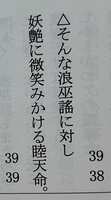 △そんな浪巫謠に対し
妖艶に微笑みかける睦天命。
38
39
39
39